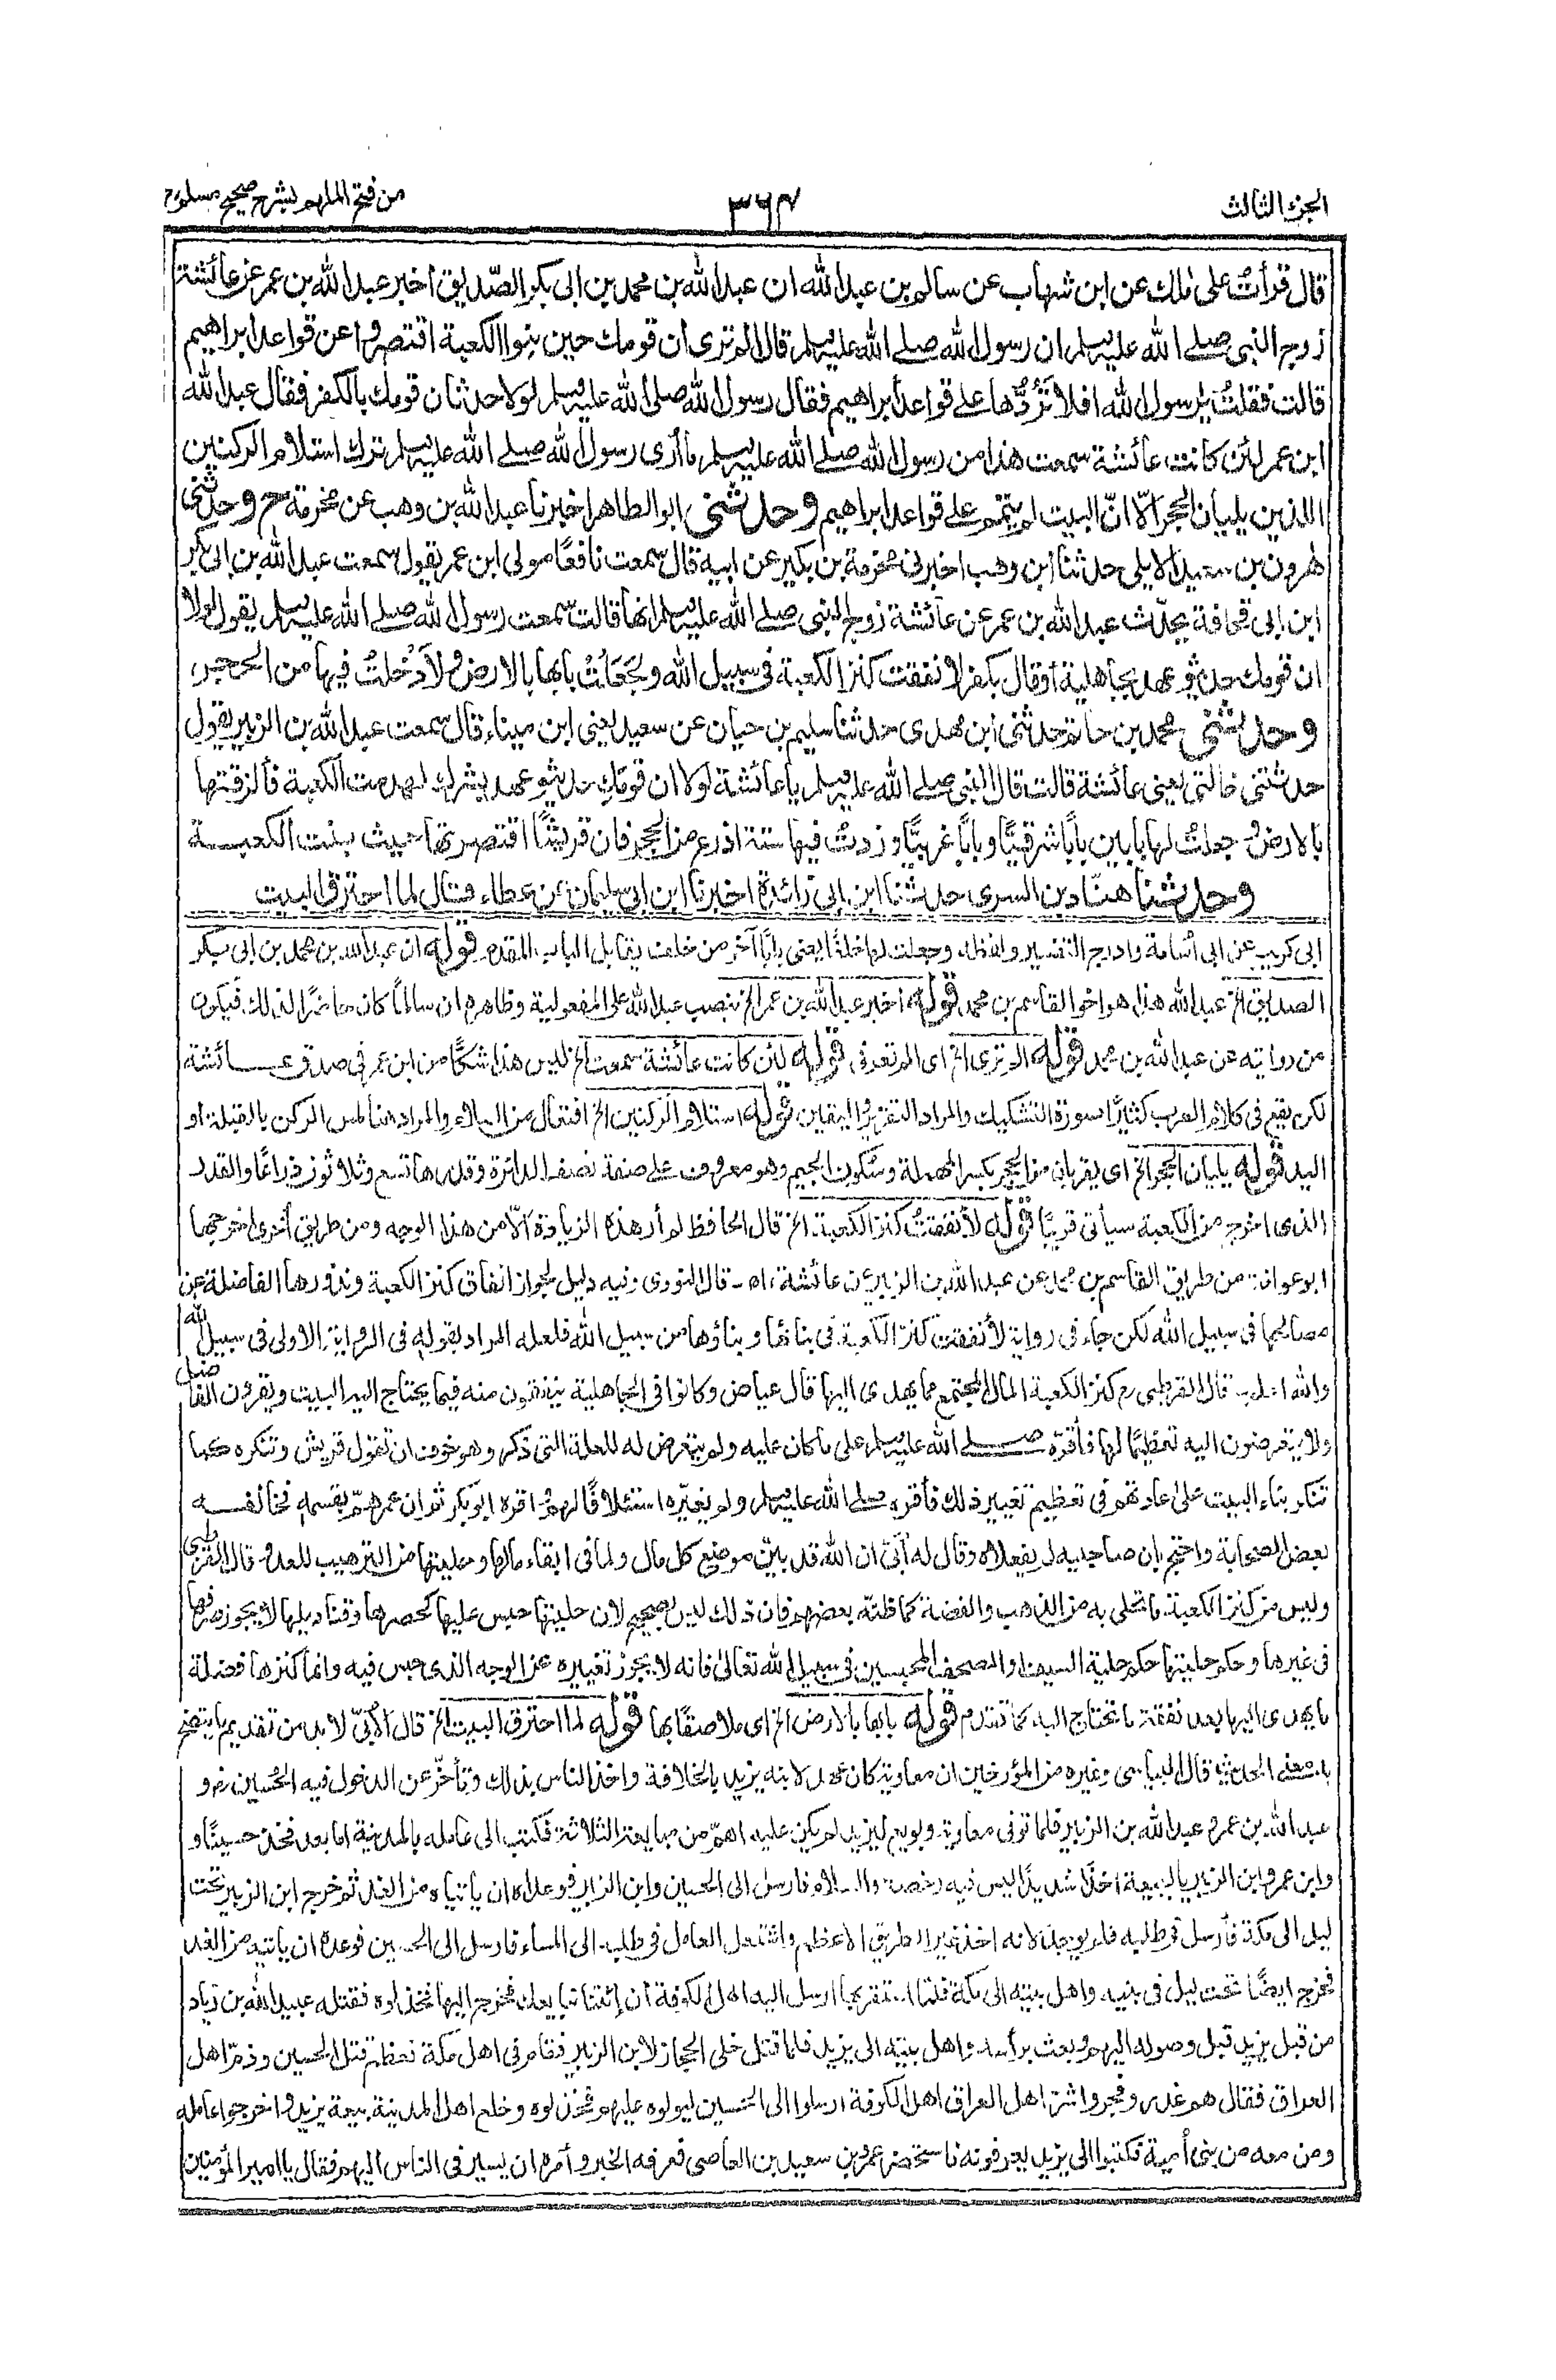 الجزء الثالث
٣٦٧
من فتح الملهم بشرح صحيح مسلم
قال قرأتُ على مٰلك عن ابن شهاب عن سالم بن عبد الله ان عبد الله بن محمد بن ابى بكر الصّديق اخبر عبد الله بن عمر عن عائشة
زوج النبى صلے الله عليه وسلم ان رسول الله صلے الله عليه وسلم قال الم ترى ان قومك حين بنوا الكعبة اقتصروا عن قواعد ابراهيم
قالت فقلتُ يٰرسول الله افلا تَرُدُّها على قواعد ابراهيم فقال رسول الله صلى الله عليه وسلم لولا حدثان قومك بالكفر فقال عبد الله
ابن عمر لئن كانت عائشة سمعت هذا من رسول الله صلے الله عليه وسلم ما أُرى رسول الله صلے الله عليه وسلم ترك استلام الركنين
اللذين يليان الحجر الّا انّ البيت لم يتمم على قواعد ابراهيم وحدثنى ابو الطاهر اخبرنا عبد الله بن وهب عن مخرمة ح وحدثنى
هٰرون بن سعيد الايلى حدثنا ابن وهب اخبرنى مخرمة بن بكير عن ابيه قال سمعت نافعًا مولى ابن عمر يقول سمعت عبد الله بن ابى بكر
ابن ابى قحافة يحدّث عبد الله بن عمر عن عائشة زوج النبى صلے الله عليه وسلم انها قالت سمعت رسول الله صلے الله عليه وسلم يقول لولا
ان قومك حديثو عهد بجاهلية أوقال بكفر لأنفقت كنز الكعبة فى سبيل الله ولجَعَلتُ بابها بالارض ولأَدْخلتُ فيها من الحجر
وحدثنى محمد بن حاتم حدثنى ابن مهدى حدثنا سليم بن حيان عن سعيد يعنى ابن ميناء قال سمعت عبد الله بن الزبير يقول
حدثتنى خالتى يعنى عائشة قالت قال النبى صلے الله عليه وسلم يا عائشة لولا ان قومكِ حديثو عهد بشرك لهدمت الكعبة فألزقتها
بالارض وجعلتُ لها بابين بابًا شرقيًّا وبابًا غربيًّا وزدتُ فيها ستة اذرع من الحجر فان قريشًا اقتصرتها حيث بنت الكعبة
وحدثنا هنّاد بن السرى حدثنا ابن ابى زائدة اخبرنا ابن ابى سليمان عن عطاء قال لما احترق البيت
ابى كريب عن ابى أسامة وادرج التفسير ولفظه وجعلت لها خلفًا يعنى بابًا آخر من خلف يقابل الباب المقدم قوله ان عبد الله بن محمد بن ابى بكر
الصديق الخ عبد الله هذا هو اخو القاسم بن محمد قوله اخبر عبد الله بن عمر الخ بنصب عبد الله على المفعولية وظاهره ان سالمًا كان حاضرًا لذلك فيكون
من روايته عن عبد الله بن محمد قوله الم ترى الخ اى الم تعرفى قوله لئن كانت عائشة سمعت الخ ليس هذا شكًّا من ابن عمر فى صدق عائشة
لكن يقع فى كلام العرب كثيرًا صورة التشكيك والمراد التقرير واليقين قوله استلام الركنين الخ افتعال من السلام والمراد هنا لمس الركن بالقبلة او
اليد قوله يليان الحجر الخ اى يقربان من الحجر بكسر المهملة وسكون الجيم وهو معروف على صفة نصف الدائرة وقدرها تسع وثلاثون ذراعًا والقدر
الذى اخرج من الكعبة سيأتى قريبًا قوله لأنفقتُ كنز الكعبة الخ قال الحافظ لم أر هذه الزيادة الّا من هذا الوجه ومن طريق أخرى اخرجها
ابو عوانة من طريق القاسم بن محمد عن عبد الله بن الزبير عن عائشة، اه - قال النووى وفيه دليل لجواز انفاق كنز الكعبة ونذورها الفاضلة عن
مصالحها فى سبيل الله لكن جاء فى رواية لأنفقت كنز الكعبة فى بنائها وبناؤها من سبيل الله فلعله المراد بقوله فى الرواية الاولى فى سبيل الله
والله اعلم - قال القرطبى رح كنز الكعبة المال المجتمع مما يهدى اليها قال عياض وكانوا فى الجاهلية ينفقون منه فيما يحتاج اليه البيت ويقرّون الفاضل
ولا يتعرضون اليه تعظيمًا لها فأقرّه صلے الله عليه وسلم على ما كان عليه ولم يتعرض له للعلة التى ذكر وهو خوف ان تقول قريش وتنكره كما
تنكر بناء البيت على عادتهم فى تعظيم تغيير ذلك فأقره صلے الله عليه وسلم ولم يغيّره استئلافًا لهم واقره ابو بكر ثم ان عمر همّ بقسمه فخالفه
بعض الصحابة واحتج بان صاحبيه لم يفعلاه وقال له أُبَىّ ان الله قد بيّن موضع كل مال ولما فى ابقاء مالها وحليتها من الترهيب للعدو قال القرطبى
وليس من كنز الكعبة ما تحلى به من الذهب والفضة كما ظنّه بعضهم فان ذلك ليس بصحيح لان حليتها حبس عليها كحصرها وقناديلها لا يجوز صرفها
فى غيرها وحكم حليتها حكم حلية السيف والمصحف المحبسين فى سبيل الله تعالى فانه لا يجوز تغييره عن الوجه الذى حبس فيه وانما كنزها فضلة
ما يهدى اليها بعد نفقة ما تحتاج اليه كما تقدم قوله بابها بالارض الخ اى ملاصقًا بها قوله لما احترق البيت الخ قال الأُبىّ لا بد من تقديم ما يتضح
به معنى الحديث قال البياسى وغيره من المؤرخين ان معاوية كان عهد لابنه يزيد بالخلافة واخذ الناس بذلك وتأخر عن الدخول فيه الحسين رض و
عبد الله بن عمر وعبد الله بن الزبير فلما توفى معاوية وبويع ليزيد لم يكن عليه اهمّ من مبايعة الثلاثة فكتب الى عامله بالمدينة اما بعد فخذ حسينًا و
وابن عمر وابن الزبير بالبيعة اخذًا شديدًا ليس فيه رخصة والسلام فارسل الى الحسين وابن الزبير فوعداه ان يأتياه من الغد ثم خرج ابن الزبير تحت
ليل الى مكة فأرسل فى طلبه فلم يوجد لانه اخذ غير الطريق الاعظم واشتغل العامل فى طلبه الى المساء فارسل الى الحسين فوعده ان يأتيه من الغد
فخرج ايضًا تحت ليل فى بنيه واهل بيته الى مكة فلما استقر بها ارسل اليه اهل الكوفة أن إئتنا نبايعك فخرج اليها فخذلوه فقتله عبيد الله بن زياد
من قبل يزيد قبل وصوله اليهم وبعث برأسه واهل بيته الى يزيد فلما قتل خلى الحجاز لابن الزبير فقام فى اهل مكة فعظم قتل الحسين وذمّ اهل
العراق فقال هم غدر وفجر واشر اهل العراق اهل الكوفة ارسلوا الى الحسين ليولوه عليهم فخذلوه وخلع اهل المدينة بيعة يزيد واخرجوا عامله
ومن معه من بنى أمية فكتبوا الى يزيد يعرفونه فاستحضر عمرو بن سعيد بن العاصى فعرفه الخبر وأمره ان يسير فى الناس اليهم فقال يا امير المؤمنين